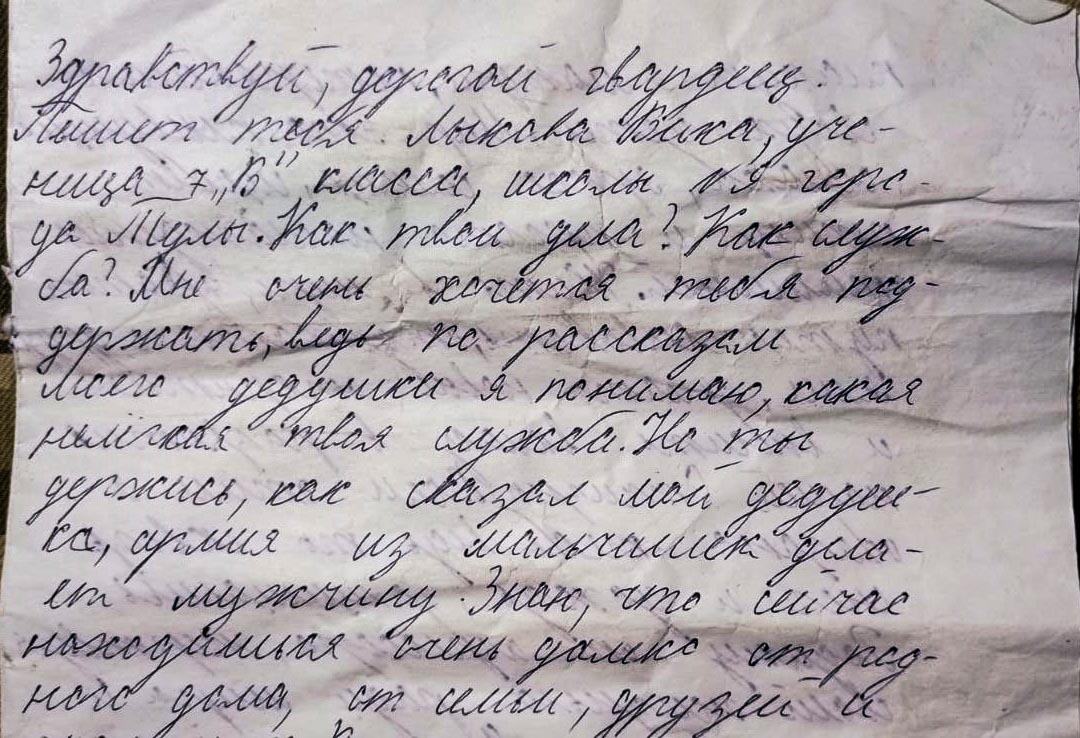 Здравствуй, дорогой гвардеец.
Пишет тебя Лыкова Вика, уче-
ница 7 „В" класса, школы №9 горо-
да Тулы. Как твои дела? Как служ-
ба? Мне очень хочется тебя под-
держать, ведь по рассказам
моего дедушки я понимаю, какая
нелёгкая твоя служба. Но ты
держись, как сказал мой дедуш-
ка, армия из мальчишек дела-
ет мужчину. Знаю, что сейчас
находишься очень далеко от род-
ного дома, от семьи, друзей и